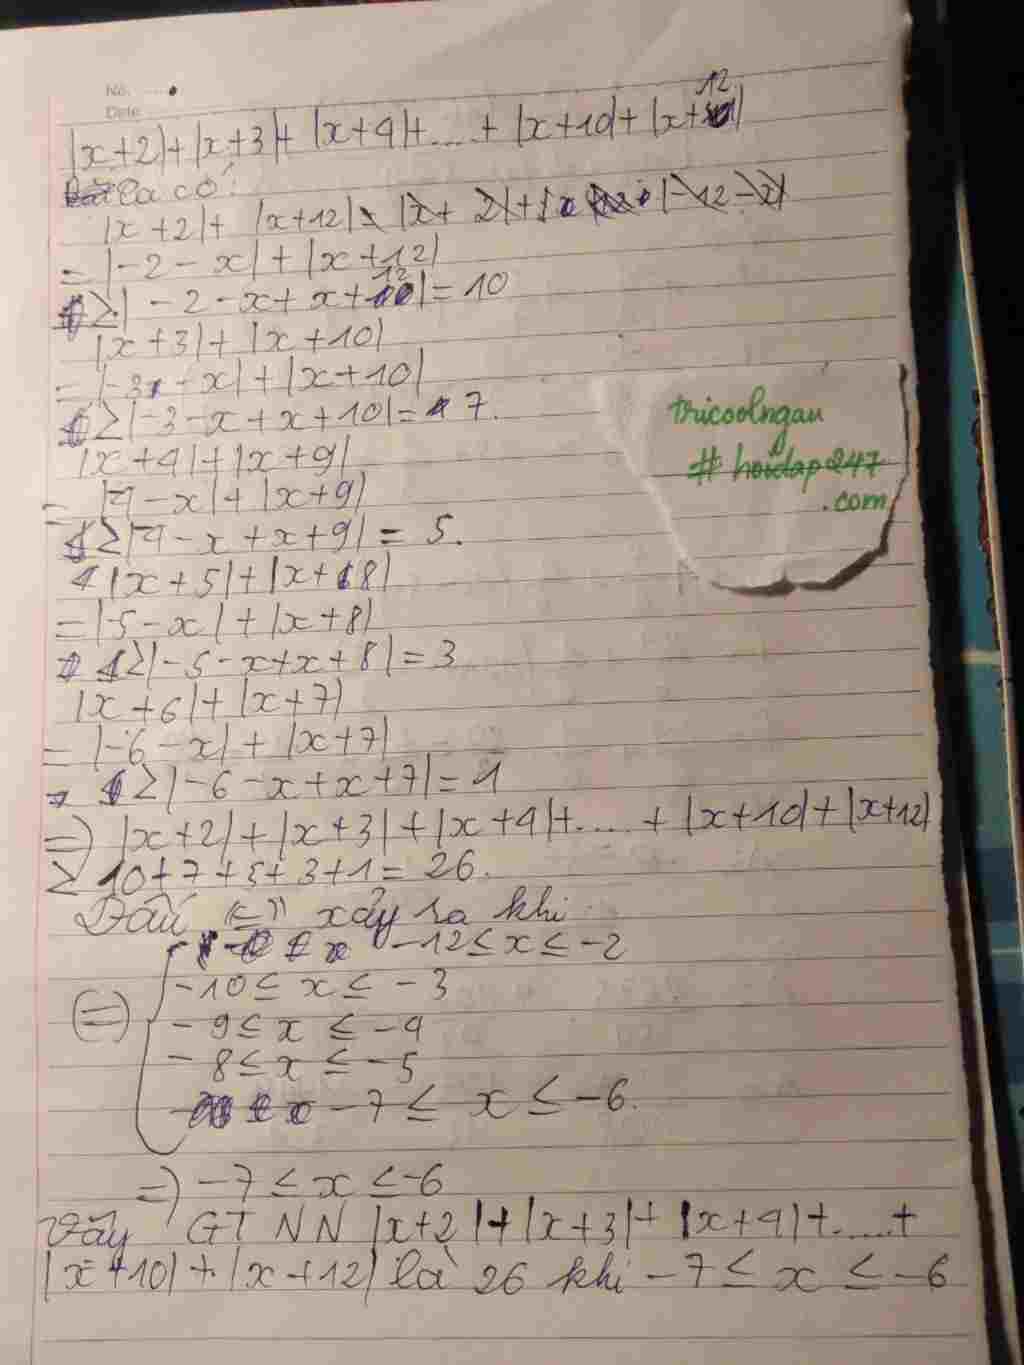 No.
Date
|x+2|+|x+3|+|x+4|+....+|x+10|+|x+12|
Ta có:
|x+2|+|x+12|
=|-2-x|+|x+12|
≥|-2-x+x+12|=10
|x+3|+|x+10|
=|-3-x|+|x+10|
≥|-3-x+x+10|=7.
|x+4|+|x+9|
=|-4-x|+|x+9|
≥|-4-x+x+9|=5.
|x+5|+|x+8|
=|-5-x|+|x+8|
≥|-5-x+x+8|=3
|x+6|+|x+7|
=|-6-x|+|x+7|
≥|-6-x+x+7|=1
=>|x+2|+|x+3|+|x+4|+....+|x+10|+|x+12|
≥10+7+5+3+1=26.
Dấu "=" xảy ra khi
-12≤x≤-2
<=> -10≤x≤-3
-9≤x≤-4
-8≤x≤-5
-7≤x≤-6.
=>-7≤x≤-6
Vậy GTNN |x+2|+|x+3|+|x+4|+.....+
|x+10|+|x+12| là 26 khi -7≤x≤-6
tricoolngau
# hoidap247
.com